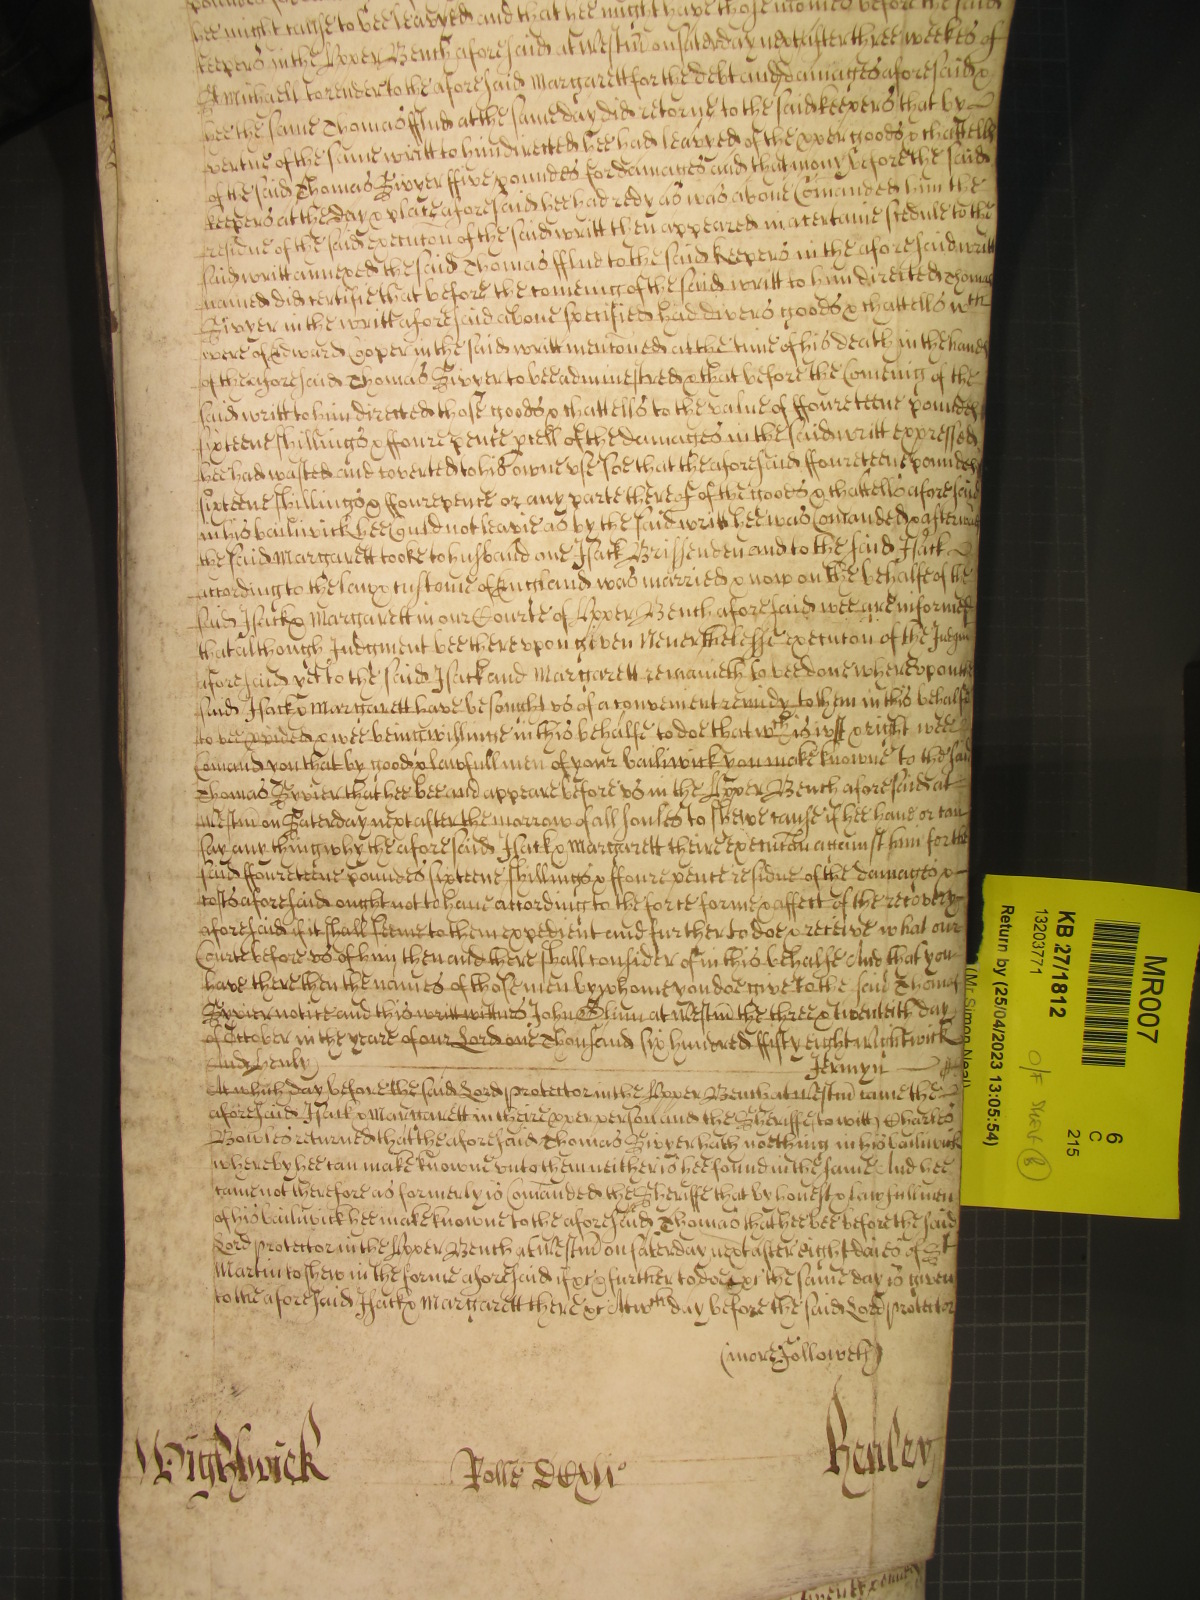 hee might cause to bee leavyed and that hee might have those monies before the said
keepers in the Upper Bench aforesaid at Westm on Saterday next after three weekes of
St Michaell to render to the aforesaid Margarett for the debt and damages aforesaid &
hee the same Thomas fflud at the same day did retorne to the said keepers that by
vertue of the same writt to him directed hee had leavyed of the xper goods & chattells
of the said Thomas Bixxer ffive poundes for damages and that mony before the said
keepers at the day & place aforesaid hee had redy as was above Comanded him the
residue of the said execucon of the said writt then appeared in a certaine scedule to the
said writt annexed the said Thomas fflud to the said keepers in the aforesaid writt
named did certifie that before the comeing of the said writt to him directed Thomas
in the writt aforesaid above specified had divers goods & chattells wch
were of Edward Coper in the said writt mentoned at the time of his death in the hands
of the aforesaid Thomas to bee administred & that before the Comeing of the
said writt to him directed those goods & chattells to the value of ffoureteene poundes
sixteene shillings & ffoure pence pcell of the damages in the said writt expressed
hee had wasted and coverted to his owne use soe that the aforesaid ffoureteene poundes
sixteene shillings & ffourepence or any parte thereof of the goods & chattells aforesaid
in his bailiwick hee Could not leavie as by the said writt hee was Comanded & afterward
the said Margarett tooke to husband one Isack Brissenden and to the said Isack
according to the law & custome of England was married & now on the behalfe of the
said Isack & Margarett in our Courte of Upper Bench aforesaid wee are informed
that although Judgment bee thereupon given Neverthelesse execucon of the Judgmt
aforesaid yet to the said Isack and Margarett remaineth to bee done whereupon the
said Isack & Margarett have besought us of a convenient remidy to them in this behalfe
to bee pvided & wee being willinge in this behalfe to doe that wch is just & right wee
Comand you that by good & lawfull men of your bailiwick you make knowne to the said
Thomas that hee bee and appeare before us in the Upper Bench aforesaid at
Westm on Saterday next after the morrow of all soules to shewe cause if hee have or can
say any thing why the aforesaid Isack & Margarett theire execucon against him for the
said ffoureteene poundes sixteene shillings & ffoure pence residue of the damages &
costs aforesaid ought not to have according to the force forme & affect of the recovery
aforesaid if it shall seeme to them expedient and further to doe & receive what our
Courte before us of him then and there shall consider of in this behalfe And that you
have there then the names of those men by whome you doe give to the said Thomas
notice and this writt wittnes John Glynn at Westm the three & twenteth day
of October in the yeare of our Lord one Thousand six hundred ffifty eight Wightwick
and Henly Jermyn
At which day before the said Lord protector in the Upper Bench at Westm came the
aforesaid Isack & Margarett in theire xper person and the Sheriffe to witt Charles
Bowles returned that the aforesaid Thomas hath noething in his bailiwick
whereby hee can make knowne unto them neither is hee found in the same And hee
came not therefore as formerly is Comanded the Sheriffe that by honest & lawfull men
of his bailiwick hee make knowne to the aforesaid Thomas that hee bee before the said
Lord protector in the Upper Bench at Westm on Saterday next after eight daies of St
Martin to shew in the forme aforesaid if &c & further to doe &c the same day is given
to the aforesaid Isack & Margarett there &c At wch day before the said Lord protector
(more Followeth)
Wightwick Rolle Henley
MR007
6
C
215
KB 27/1812
13203771
O/F Shelf 8
Return by (25/04/2023 13:05:54)
(Mr Simon Neal)